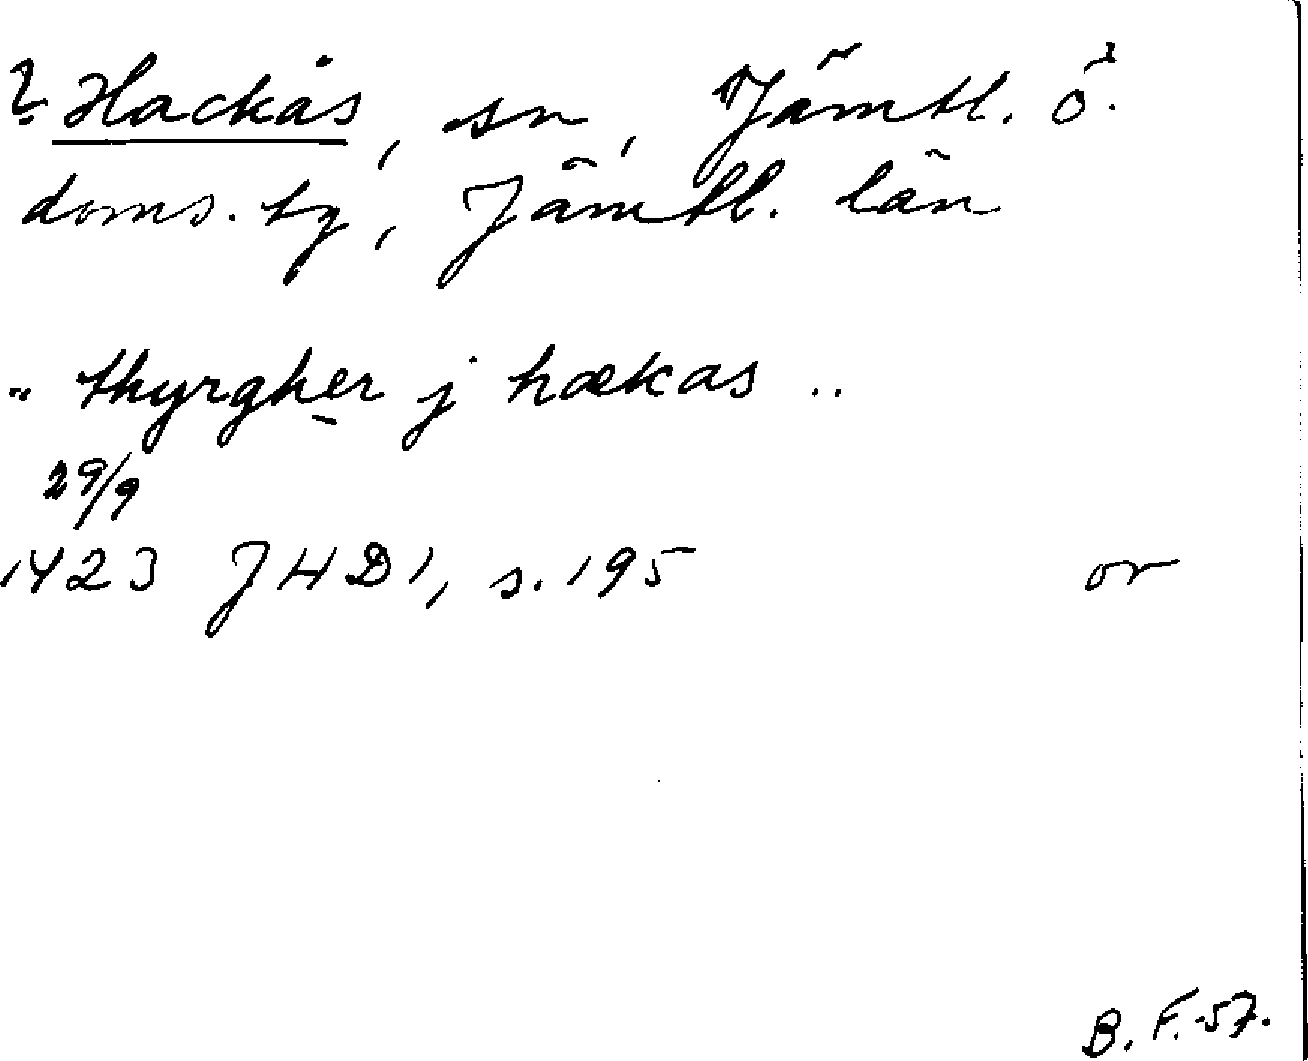 ? Hackås, sn, Jämtl. ö.
doms. tg, Jämtl. län
.. thyrgher j hækas ..
29/9
1423 JHD 1, s. 195 or
B. F. 57.